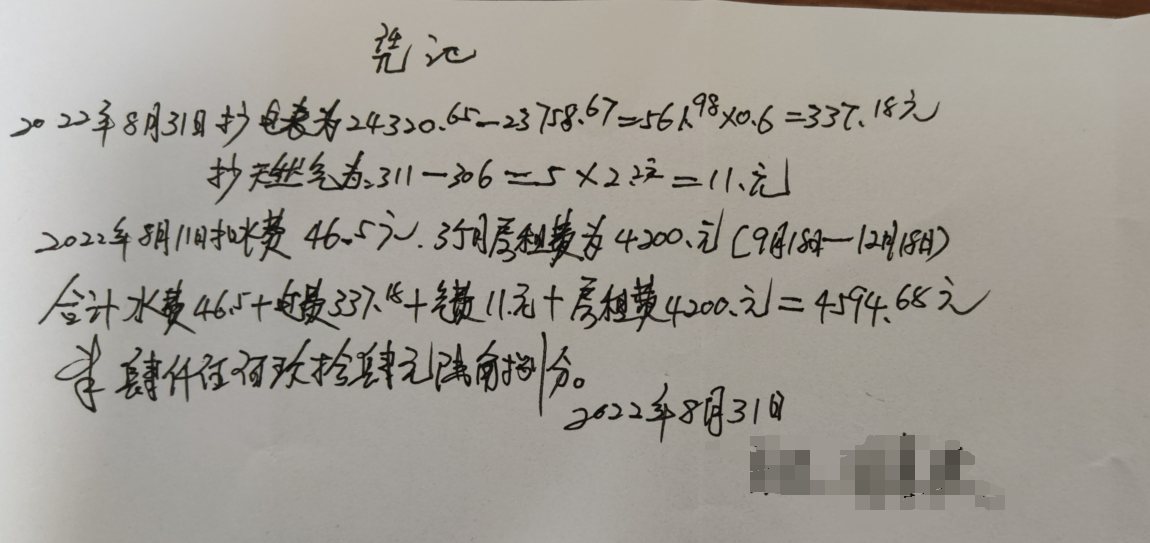 凭记
2022年8月31日抄电表为24320.65-23758.67=561.98×0.6=337.18元
抄天然气为:311-306=5×2.2元=11.元
2022年8月11日扣水费46.5元.3个月房租费为4200.元(9月18日—12月18日)
合计水费46.5+电费337.18+气费11.元+房租费4200.元=4594.68元
肆仟伍佰玖拾肆元陆角捌分。
2022年8月31日